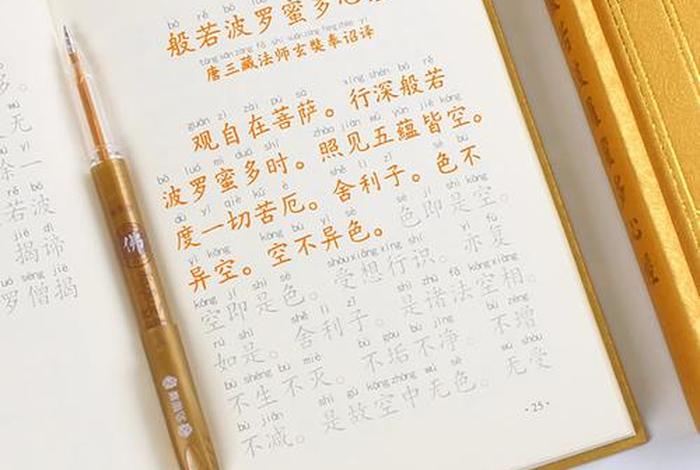 多。
wú
无
rě bō
若波
jiē dì
揭谛
luó sēng jiē
罗僧揭
佛
bō rě bō luó
般若波罗蜜多心
táng sān zàng fǎ shī xuán zàng fèng zhào yì
唐三藏法师玄奘奉诏译
guān zì zài pú sà xíng shēn bō rě
观自在菩萨。行深般若
bō luó mì duō shí zhào jiàn wǔ yùn jiē kōng
波罗蜜多时。照见五蕴皆空。
dù yī qiè kǔ è shè lì zǐ sè bù
度一切苦厄。舍利子。色不
yì kōng kōng bù yì sè sè jí shì kōng
异空。空不异色。色即是空。
kōng jí shì sè shòu xiǎng xíng shí yì fù
空即是色。受想行识。亦复
rú shì shè lì zǐ shì zhū fǎ kōng xiàng
如是。舍利子。是诸法空相。
bù shēng bù miè bù gòu bù jìng bù zēng
不生不灭。不垢不净。不增
bù jiǎn shì gù kōng zhōng wú sè wú shòu
不减。是故空中无色。无受
·25·